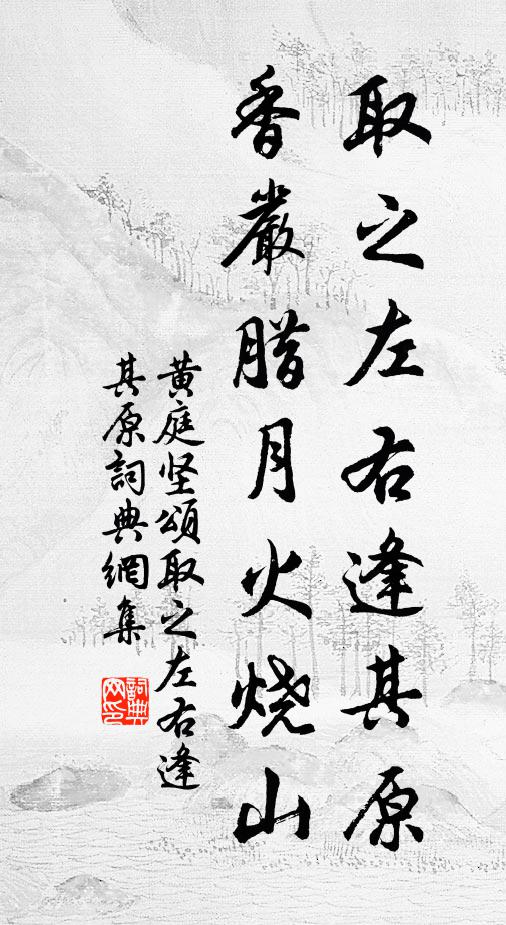 取之左右逢其原
香嚴腊月火烧山
黄庭坚頌取之左右逢
其原詞典網集
詞典
网印